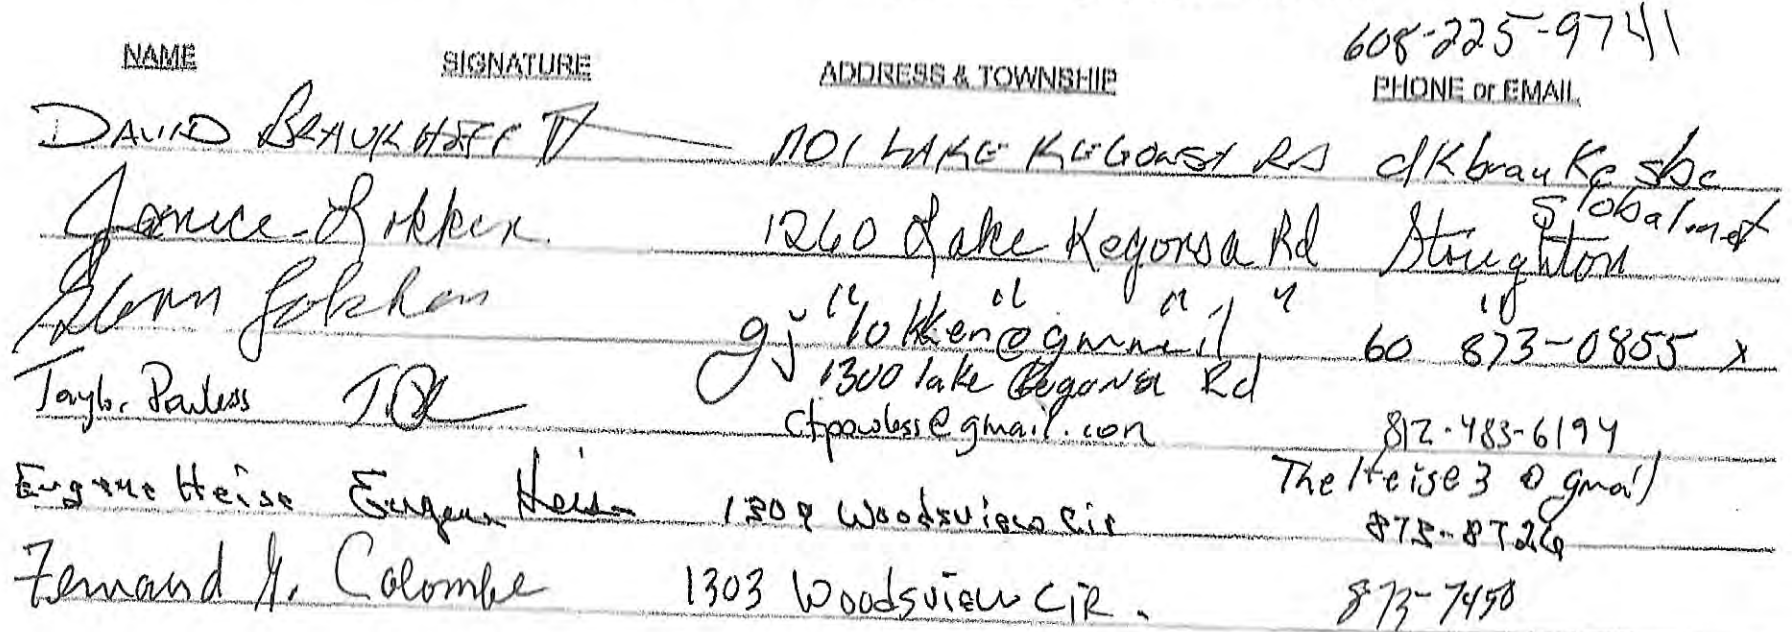 608-225-9741
NAME SIGNATURE ADDRESS & TOWNSHIP PHONE or EMAIL
DAVID BRAUKHOFF IV 1701 LAKE KEGONSA RD dKbrauk@sbc
global.net
Janice Lokken 1260 Lake Kegonsa Rd Stoughton
Glenn Lokken " " " " "
gjlokken@gmail 60 873-0855 x
1300 lake Kegonsa Rd
Taylor Powless ctpowless@gmail.com 812-483-6194
TheHeise3@gmail
Eugene Heise Eugene Heise 1309 Woodsview Cir 873-8726
Fernand G. Colombe 1303 Woodsview CIR. 873-7450